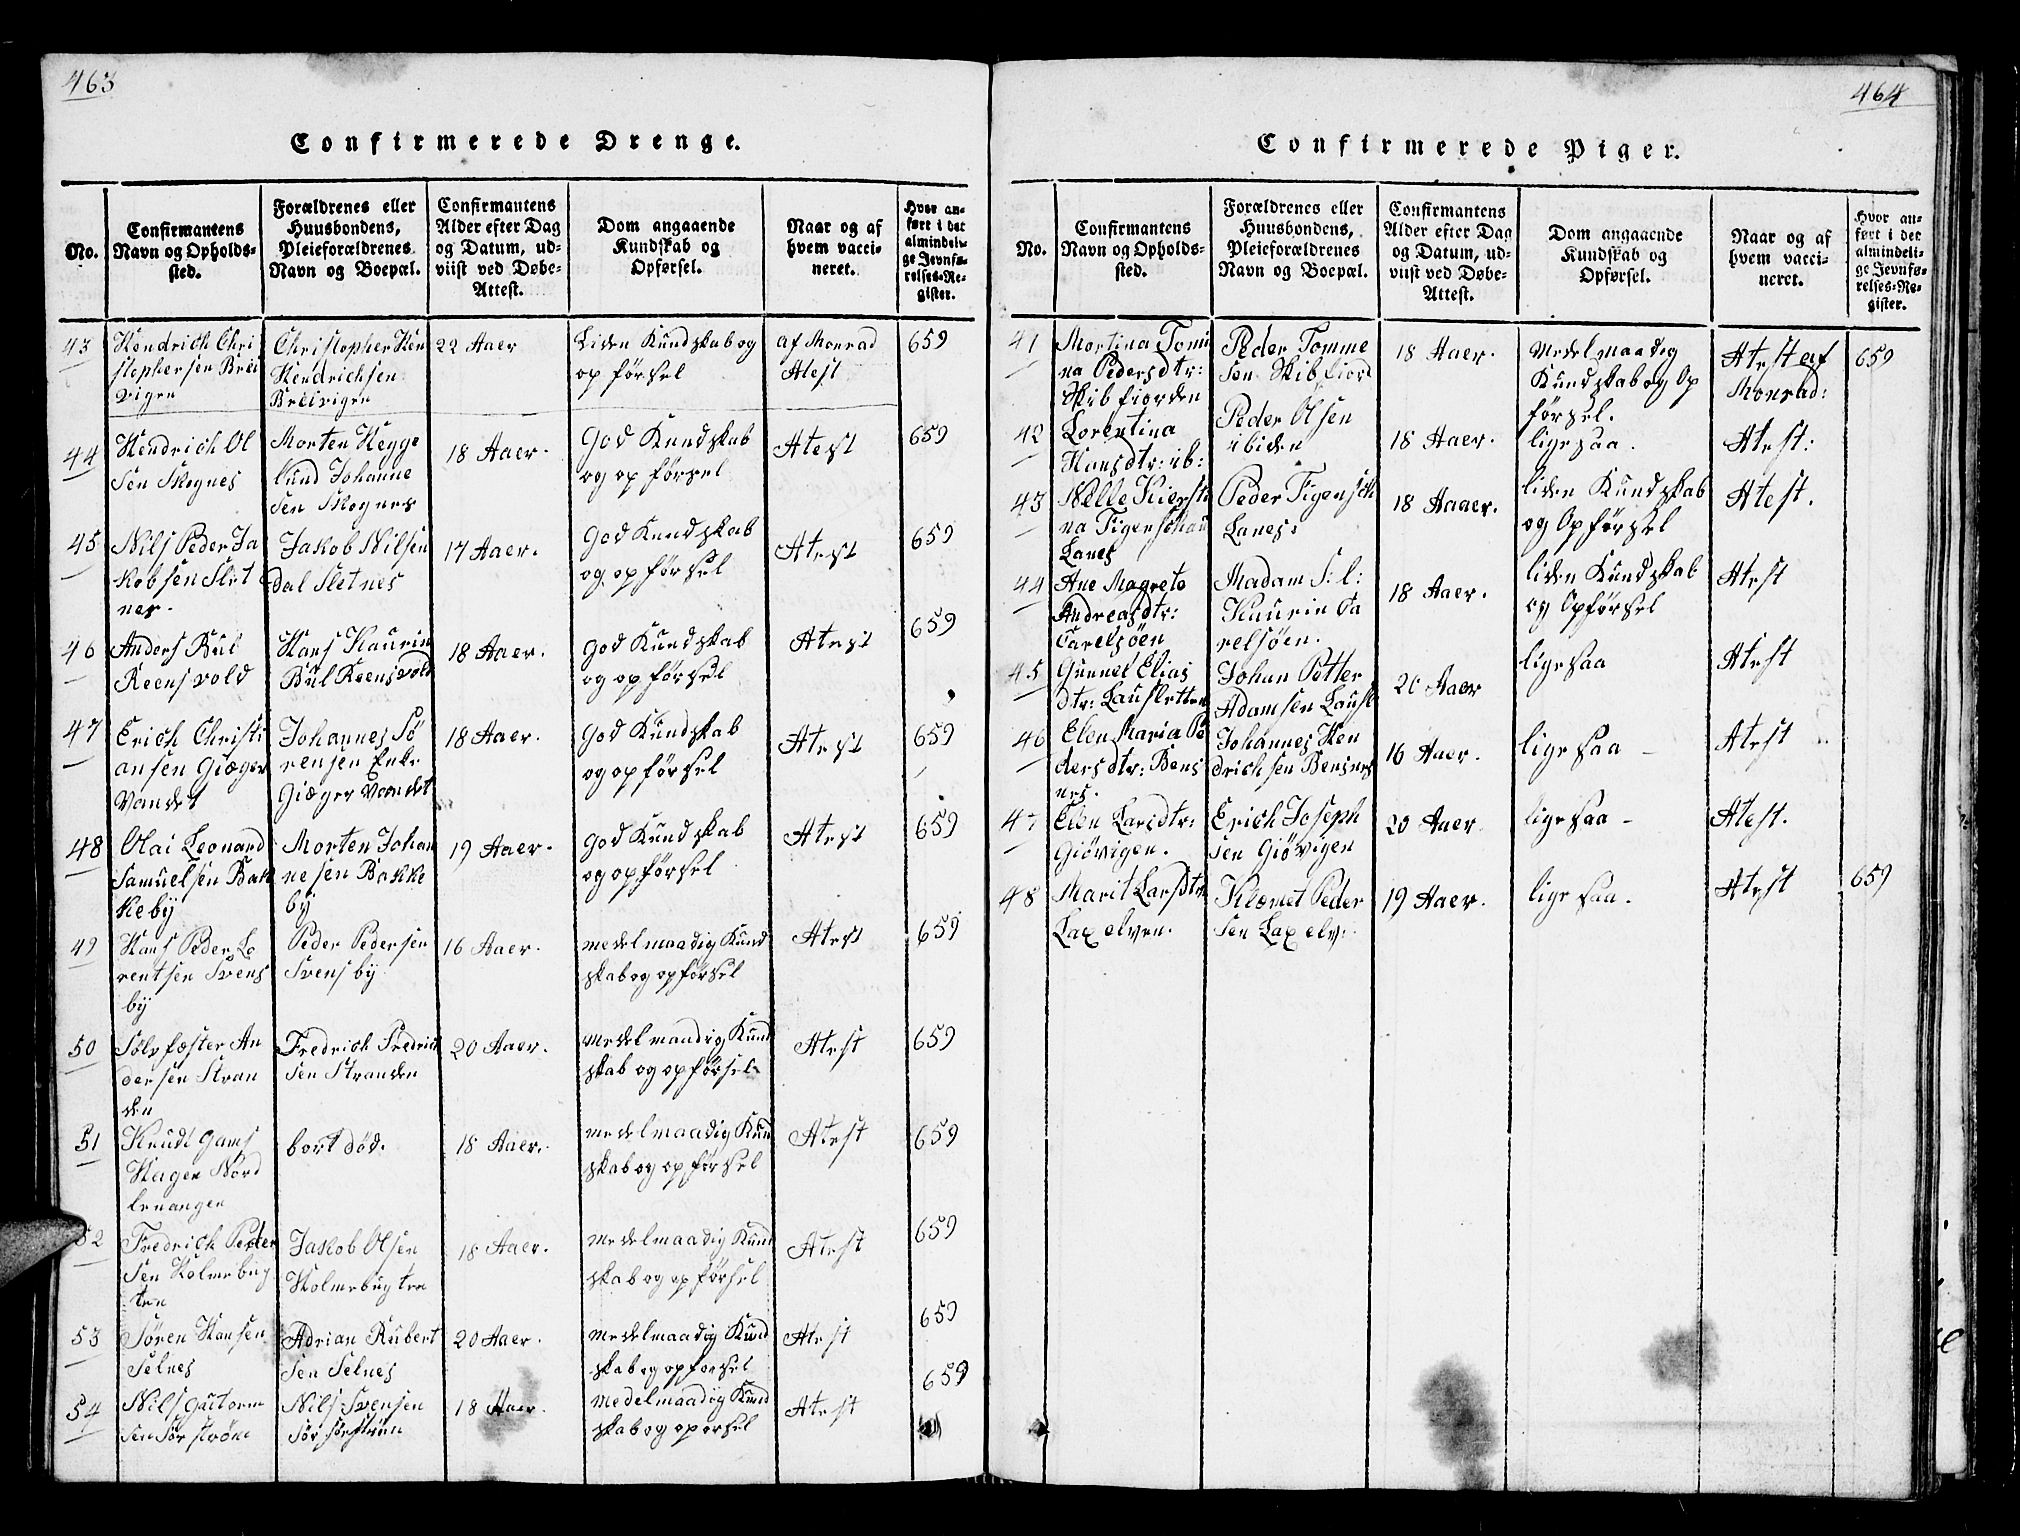 463
Confirmerede Drenge.
No.
Confirmantens
Navn og Opholds-
sted.
Forældrenes eller
Huusbondens,
Pleieforældrenes
Navn og Boepæl.
Confirmantens
Alder efter Dag
og Datum, ud-
viist ved Døbe-
Attest.
Dom angaaende
Kundskab og
Opførsel.
Naar og af
hvem vacci-
neret.
Hvor an-
ført i det
almindeli-
ge Jevnfø-
relses-Re-
gister.
43
Hendrich Chri
stophersen Brei
vigen
Christopher Hen
Hendrichsen
Breivigen
22 Aaer
Liden Kundskab og
opførsel
af Monrad
Atest
659
44
Hendrich Ol
sen Skognes
Morten Hegge
lund Johanne
sen Skognes
18 Aaer.
God Kundskab
og opførsel
Atest
659
45
Nils Peder Ja
kobsen Slet
nes.
Jakob Nilsen
dal Sletnes
17 Aaer.
God Kundskab
og opførsel
Atest
659
46
Anders Bul
Reensvold
Hans Kaurin
Bul Reensvold
18 Aaer.
God Kundskab
og opførsel
Atest
659
47
Erich Christi
ansen Giæger
Vandet
Johannes Sö
rensen Enke
Giæger Vandet
18 Aaer.
God Kundskab
og opførsel
Atest
659
48
Olai Leonard
Samuelsen Bak
keby
Morten Johan
nesen Bakke
by
19 Aaer.
God Kundskab
og opførsel
Atest
659
49
Hans Peder Lo
rentsen Svens
by
Peder Pedersen
Svensby
16 Aaer.
medelmaadig Kund
skab og opførsel
Atest
659
50
Sölvfæster An
dersen Stran
den
Fredrich Fredrich
sen Stranden
20 Aaer.
medelmaadig Kund
skab og opførsel
Atest
659
51
Knudt Gams
Hagen Nord
lenangen
bort död.
18 Aaer.
medelmaadig Kund
skab og opførsel
Atest
659
52
Fredrich Peder
sen Holmebug
ten
Jakob Olsen
Holmebugten
18 Aaer.
medelmaadig Kund
skab og opførsel
Atest
659
53
Sören Hansen
Selnes
Adrian Rubert
sen Selnes
20 Aaer.
medelmaadig Kund
skab og opførsel
Atest
659
54
Nils Gutorm
sen Sörströmen
Nils Svensen
18 Aaer.
medelmaadig Kund
skab og opørsel
Atest
659
464
Confirmerede Piger.
No.
Confirmantens
Navn og Opholds-
sted.
Forældrenes eller
Huusbondens,
Pleieforældrenes
Navn og Boepæl.
Confirmantens
Alder efter Dag
og Datum, ud-
viist ved Døbe-
Attest.
Dom angaaende
Kundskab og
Opførsel.
Naar og af
hvem vacci-
neret.
Hvor an-
ført i det
almindeli-
ge Jevnfø-
relses-Re-
gister.
41
Mortina Tomi
na Pedersdtr:
Skibfiorden
Peder Tomme
sen Skibfiord
18 Aaer.
Medelmaadig
Kundskab og Op
førsel.
Atest af
Monrad:
659
42
Lorentina
Hansdtr: ib:
Peder Olsen
ibiden
18 Aaer.
ligesaa.
Atest:
43
Nelle Kiersti
na Figenschau
Lanes
Peder Figensch
Lanes:
18 Aaaer.
liden Kundskab
og Opførsel
Atest.
44
Ane Magrete
Andreasdtr:
Carelsöen
Madam S: l:
Kaurin Ca
relsöen.
18 Aaer.
liden Kundskab
og Opførsel
Atest
45
Gunnel Elias
dtr: Lausletten
Johan Petter
Adamsen Lausl
20 Aaer
ligesaa
Atest
46
Elen Maria Pe
dersdtr: Bens
nes.
Johannes Hen
drichsen Bensnes
16 Aaer.
ligesaa –
Atest
47
Elen Larsdtr:
Giövigen.
Erich Joseph
sen Giövigen
20 Aaer
ligesaa –
Atest.
48
Marit Larsdtr
Laxelven.
Klemet Peder
sen Laxelv:
19 Aaer.
ligesaa.
Atest
659